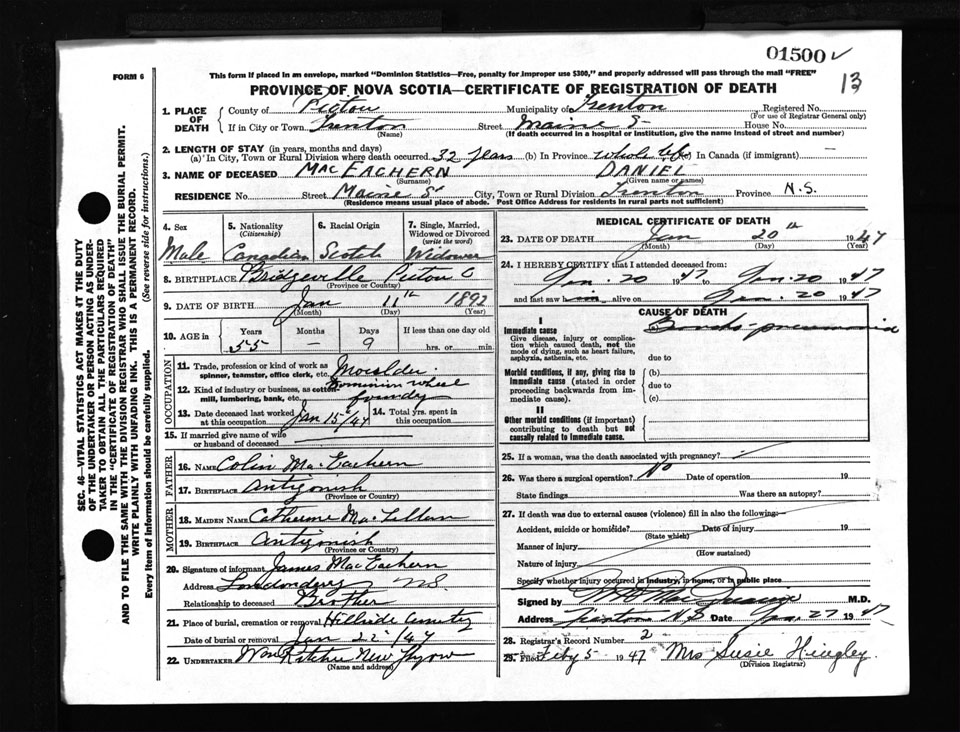 01500 ✓
13
FORM 6
This form if placed in an envelope, marked "Dominion Statistics—Free, penalty for improper use $300," and properly addressed will pass through the mail "FREE"
PROVINCE OF NOVA SCOTIA—CERTIFICATE OF REGISTRATION OF DEATH
1. PLACE OF DEATH County of Pictou Municipality of Trenton Registered No.
(For use of Registrar General only)
If in City or Town Trenton (Name) Street Maine S House No.
(If death occurred in a hospital or institution, give the name instead of street and number)
2. LENGTH OF STAY (in years, months and days)
(a) In City, Town or Rural Division where death occurred 32 years (b) In Province whole life (c) In Canada (if immigrant) —
3. NAME OF DECEASED MacEACHERN (Surname) DANIEL (Given name or names)
RESIDENCE No. Street Maine St City, Town or Rural Division Trenton Province N.S.
(Residence means usual place of abode. Post Office Address for residents in rural parts not sufficient)
SEC. 46—VITAL STATISTICS ACT MAKES IT THE DUTY
OF THE UNDERTAKER OR PERSON ACTING AS UNDER-
TAKER TO OBTAIN ALL THE PARTICULARS REQUIRED
IN THE "CERTIFICATE OF REGISTRATION OF DEATH"
AND TO FILE THE SAME WITH THE DIVISION REGISTRAR WHO SHALL ISSUE THE BURIAL PERMIT.
WRITE PLAINLY WITH UNFADING INK. THIS IS A PERMANENT RECORD.
Every item of information should be carefully supplied. (See reverse side for instructions.)
4. Sex 5. Nationality (Citizenship) 6. Racial Origin 7. Single, Married, Widowed or Divorced (write the word)
Male Canadian Scotch Widower
8. BIRTHPLACE Bridgeville Pictou C
(Province or Country)
9. DATE OF BIRTH Jan 11th 1892
(Month) (Day) (Year)
10. AGE in Years Months Days If less than one day old
55 — 9 hrs. or min.
OCCUPATION
11. Trade, profession or kind of work as spinner, teamster, office clerk, etc. Moulder
12. Kind of industry or business, as cotton mill, lumbering, bank, etc. Dominion wheel foundry
13. Date deceased last worked at this occupation Jan 15th/47 14. Total yrs. spent in this occupation
15. If married give name of wife or husband of deceased
FATHER
16. NAME Colin MacEachern
17. BIRTHPLACE Antigonish
(Province or Country)
MOTHER
18. MAIDEN NAME Catherine MacLellan
19. BIRTHPLACE Antigonish
(Province or Country)
20. Signature of informant James MacEachern
Address Londonderry NS
Relationship to deceased Brother
21. Place of burial, cremation or removal Hillside Cemetery
Date of burial or removal Jan 22nd/47
22. UNDERTAKER Wm Ritchie New Glasgow
(Name and address)
MEDICAL CERTIFICATE OF DEATH
23. DATE OF DEATH Jan 20th 1947
(Month) (Day) (Year)
24. I HEREBY CERTIFY that I attended deceased from:
Jan. 20 1947 to Jan. 20 1947
and last saw him alive on Jan. 20 1947
CAUSE OF DEATH
I
Immediate cause Broncho-pneumonia
Give disease, injury or complication which caused death, not the mode of dying, such as heart failure, asphyxia, asthenia, etc. due to
Morbid conditions, if any, giving rise to immediate cause (stated in order proceeding backwards from immediate cause). (b) due to (c)
II
Other morbid conditions (if important) contributing to death but not causally related to immediate cause.
25. If a woman, was the death associated with pregnancy?
26. Was there a surgical operation? No Date of operation 19
State findings Was there an autopsy?
27. If death was due to external causes (violence) fill in also the following:
Accident, suicide or homicide? Date of injury 19
(State which)
Manner of injury
(How sustained)
Nature of injury
Specify whether injury occurred in industry, in home, or in public place
Signed by M.D.
Address Trenton N.S Date Jan. 27 1947
28. Registrar's Record Number 2
29. Filed Feby 5 1947 Mrs Susie Hingley
(Division Registrar)